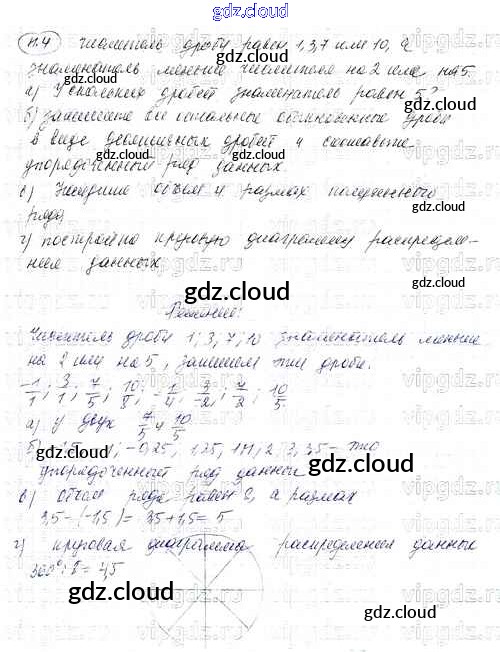 gdz.cloud
п.4 числитель дроби равен 1, 3, 7 или 10, а
знаменатель меньше числителя на 2 или на 5.
а) У скольких дробей знаменатель равен 5?
б) запишите все остальные обыкновенные дроби
в виде десятичных дробей и составьте
упорядоченный ряд данных.
с) Найдите объем и размах полученного
ряда
г) постройте круговую диаграмму распределе-
ния данных
Решение:
Числитель дроби 1; 3; 7; 10 знаменатель меньше
на 2 или на 5, запишем эти дроби.
-1/1; 3/1; 7/5; 10/8; -1/4; 3/-2; 7/2; 10/5
а) У двух 7/5 и 10/5
б) -1; -0,25; 1,25; 2; 3; 3,5 - это
упорядоченный ряд данных
в) объем ряда равен 8, а размах
3,5-(-1,5) = 3,5+1,5 = 5
г) круговая диаграмма распределения данных
360°: 8 = 45
gdz.cloud